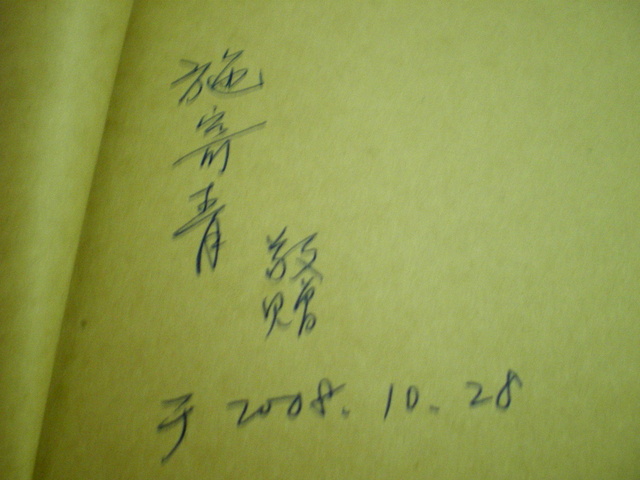 施寄青
敬赠
于2008.10.28